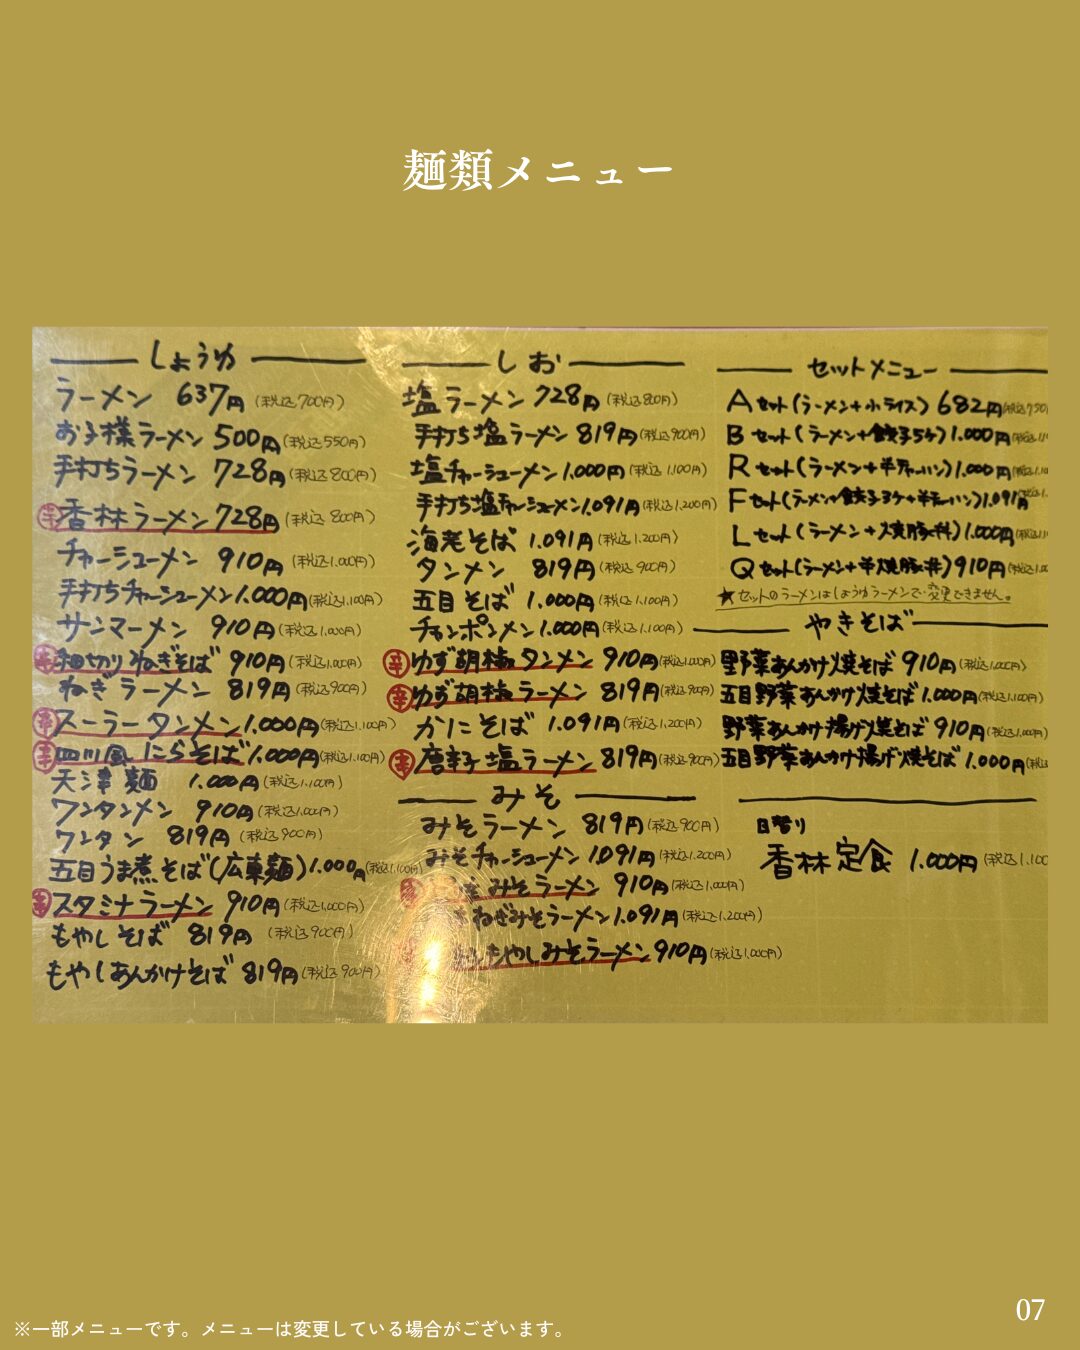 麺類メニュー
しょうゆ
ラーメン 637円(税込700円)
お子様ラーメン 500円(税込550円)
手打ちラーメン 728円(税込800円)
辛 香林ラーメン 728円(税込800円)
チャーシューメン 910円(税込1.000円)
手打ちチャーシューメン 1.000円(税込1.100円)
サンマーメン 910円(税込1.000円)
辛 細切りねぎそば 910円(税込1.000円)
ねぎラーメン 819円(税込900円)
辛 スーラータンメン 1.000円(税込1.100円)
辛 四川風にらそば 1.000円(税込1.100円)
天津麺 1.000円(税込1.100円)
ワンタンメン 910円(税込1.000円)
ワンタン 819円(税込900円)
五目うま煮そば(広東麺) 1.000円(税込1.100円)
辛 スタミナラーメン 910円(税込1.000円)
もやしそば 819円(税込900円)
もやしあんかけそば 819円(税込900円)
しお
塩ラーメン 728円(税込800円)
手打ち塩ラーメン 819円(税込900円)
塩チャーシューメン 1.000円(税込1.100円)
手打ち塩チャーシューメン 1.091円(税込1.200円)
海老そば 1.091円(税込1.200円)
タンメン 819円(税込900円)
五目そば 1.000円(税込1.100円)
チャンポンメン 1.000円(税込1.100円)
辛 ゆず胡椒タンメン 910円(税込1.000円)
辛 ゆず胡椒ラーメン 819円(税込900円)
かにそば 1.091円(税込1.200円)
辛 唐辛子塩ラーメン 819円(税込900円)
みそ
みそラーメン 819円(税込900円)
みそチャーシューメン 1.091円(税込1.200円)
みそラーメン 910円(税込1.000円)
ねぎみそラーメン 1.091円(税込1.200円)
もやしみそラーメン 910円(税込1.000円)
セットメニュー
Aセット(ラーメン+小ライス) 682円(税込750
Bセット(ラーメン+餃子5ケ) 1.000円(税込1.1
Rセット(ラーメン+半チャーハン) 1.000円(税込1.1
Fセット(ラーメン+餃子3ケ+半チャーハン) 1.091円
Lセット(ラーメン+焼豚丼) 1.000円(税込1.1
Qセット(ラーメン+半焼豚丼) 910円(税込1.00
★セットのラーメンはしょうゆラーメンで変更できません。
やきそば
野菜あんかけ焼そば 910円(税込1.000円)
五目野菜あんかけ焼そば 1.000円(税込1.100円)
野菜あんかけ揚げ焼そば 910円(税込1.000円)
五目野菜あんかけ揚げ焼そば 1.000円(税込
日替り
香林定食 1.000円(税込1.100
07
※一部メニューです。メニューは変更している場合がございます。